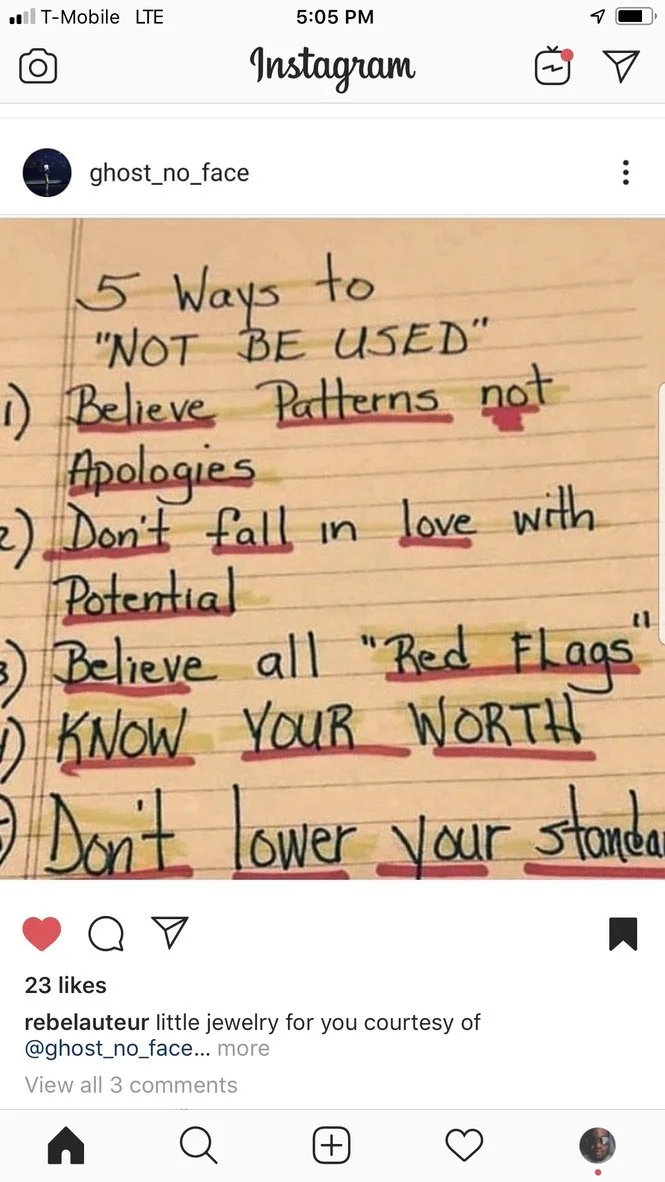 T-Mobile LTE 5:05 PM
Instagram
ghost_no_face
5 Ways to
"NOT BE USED"
1) Believe Patterns not
Apologies
2) Don't fall in love with
Potential
3) Believe all "Red Flags"
) KNOW YOUR WORTH
) Don't lower your standa
23 likes
rebelauteur little jewelry for you courtesy of
@ghost_no_face... more
View all 3 comments